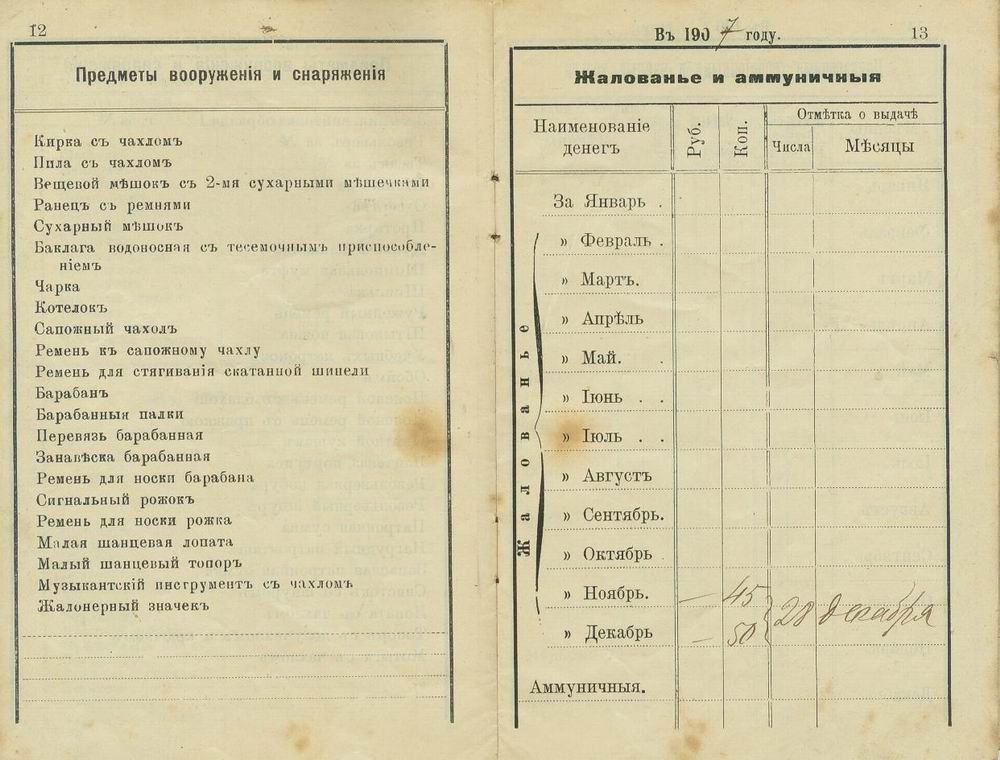 12
Предметы вооруженія и снаряженія
Кирка съ чахломъ
Пила съ чахломъ
Вещевой мѣшокъ съ 2-мя сухарными мѣшечками
Ранецъ съ ремнями
Сухарный мѣшокъ
Баклага водоносная съ тесемочнымъ приспособле-
ніемъ
Чарка
Котелокъ
Сапожный чахолъ
Ремень къ сапожному чахлу
Ремень для стягиванія скатанной шинели
Барабанъ
Барабанныя палки
Перевязь барабанная
Занавѣска барабанная
Ремень для носки барабана
Сигнальный рожокъ
Ремень для носки рожка
Малая шанцевая лопата
Малый шанцевый топоръ
Музыкантскій инструментъ съ чахломъ
Жалонерный значекъ
Въ 1907 году.
13
Жалованье и аммуничныя
Наименованіе
денегъ
Руб.
Коп.
Отмѣтка о выдачѣ
Числа
Мѣсяцы
Жалованье
За Январь .
» Февраль .
» Мартъ.
» Апрѣль
» Май. .
» Іюнь . .
» Іюль . .
» Августъ
» Сентябрь.
» Октябрь .
» Ноябрь. — 45
» Декабрь — 50
28 декабря
Аммуничныя.